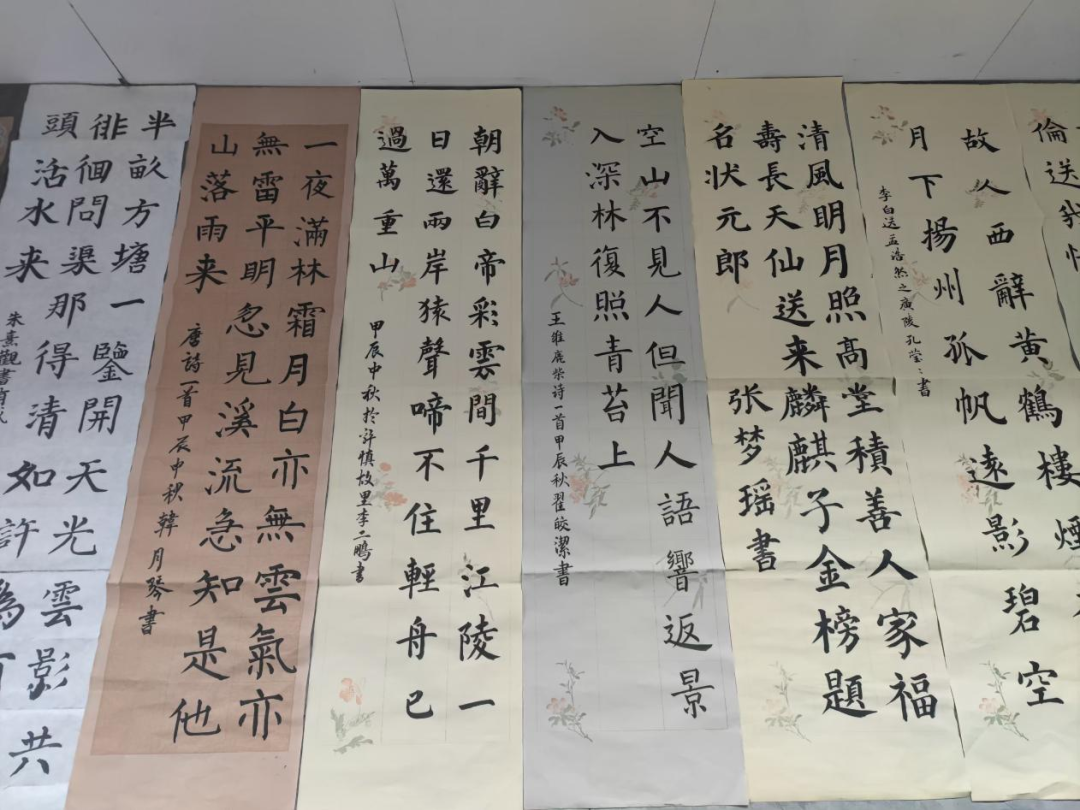 倫送我情
故人西辭黄鶴樓煙
月下揚州孤帆遠影碧空
李白送孟浩然之廣陵孔莹〻書
清風明月照高堂積善人家福
壽長天仙送来麟麒子金榜題
名状元郎
张梦瑶書
空山不見人但聞人語響返景
入深林復照青苔上
王維鹿柴诗一首甲辰秋翟皎潔書
朝辭白帝彩雲間千里江陵一
日還兩岸猿聲啼不住輕舟已
過萬重山
甲辰中秋於许慎故里李二鹏書
一夜滿林霜月白亦無雲氣亦
無雷平明忽見溪流急知是他
山落雨来
唐詩一首甲辰中秋韓月琴書
半畝方塘一鑒開天光雲影共
徘徊問渠那得清如許為
頭活水来
朱熹觀書有感